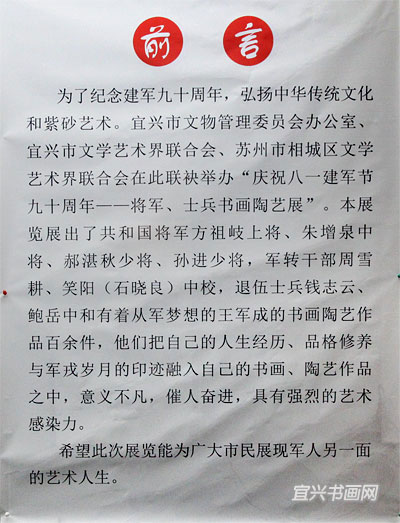 前言
为了纪念建军九十周年，弘扬中华传统文化
和紫砂艺术。宜兴市文物管理委员会办公室、
宜兴市文学艺术界联合会、苏州市相城区文学
艺术界联合会在此联袂举办“庆祝八一建军节
九十周年——将军、士兵书画陶艺展”。本展
览展出了共和国将军方祖岐上将、朱增泉中
将、郝湛秋少将、孙进少将，军转干部周雪
耕、笑阳（石晓良）中校，退伍士兵钱志云、
鲍岳中和有着从军梦想的王军成的书画陶艺作
品百余件，他们把自己的人生经历、品格修养
与军戎岁月的印迹融入自己的书画、陶艺作品
之中，意义不凡，催人奋进，具有强烈的艺术
感染力。
希望此次展览能为广大市民展现军人另一面
的艺术人生。
宜兴书画网